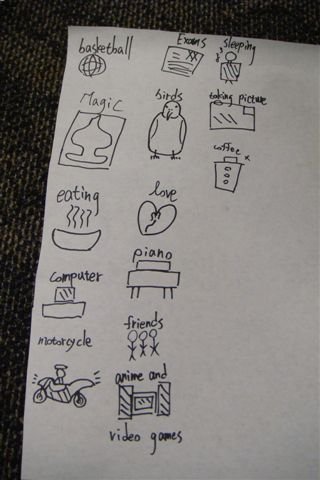 basketball
MagiC
eating
computer
motorcycle
Exams
birds
love
piano
friends
anime and
video games
sleeping
taking picture
coffee